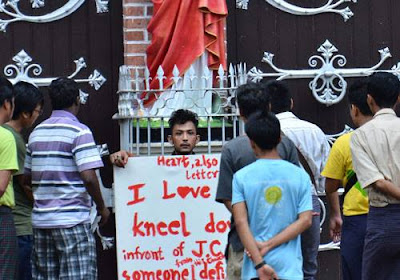 Heart, also
Letter
I Love
kneel do
infront of J.C.
someonel defi